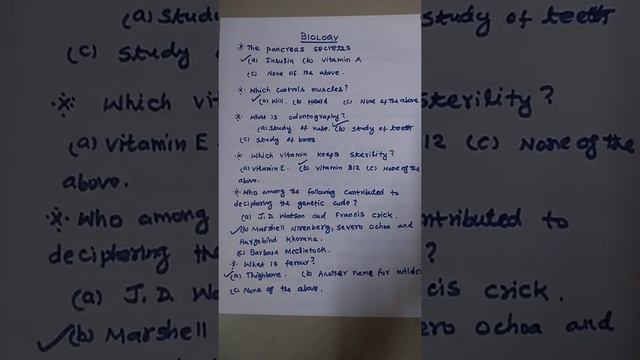 BIOLOGY
* The pancreas secretes
✓(a) Insulin (b) Vitamin A
(c) None of the above.
* Which controls muscles?
✓(a) Will. (b) Heard (c) None of the above
* What is odontography?
(a) Study of nose. ✓(b) Study of teeth
(c) Study of bones
* Which vitamin keeps sterility?
(a) Vitamin E. ✓(b) Vitamin B12 (c) None of the
above.
* Who among the following contributed to
deciphering the genetic code?
(a) J.D. Watson and Francis Crick.
✓(b) Marshell Nirenberg, Severo Ochoa and
Hargobind Khorana.
(c) Barbara McClintock.
* What is femur?
✓(a) Thighbone. (b) Another name for
(c) None of the above.